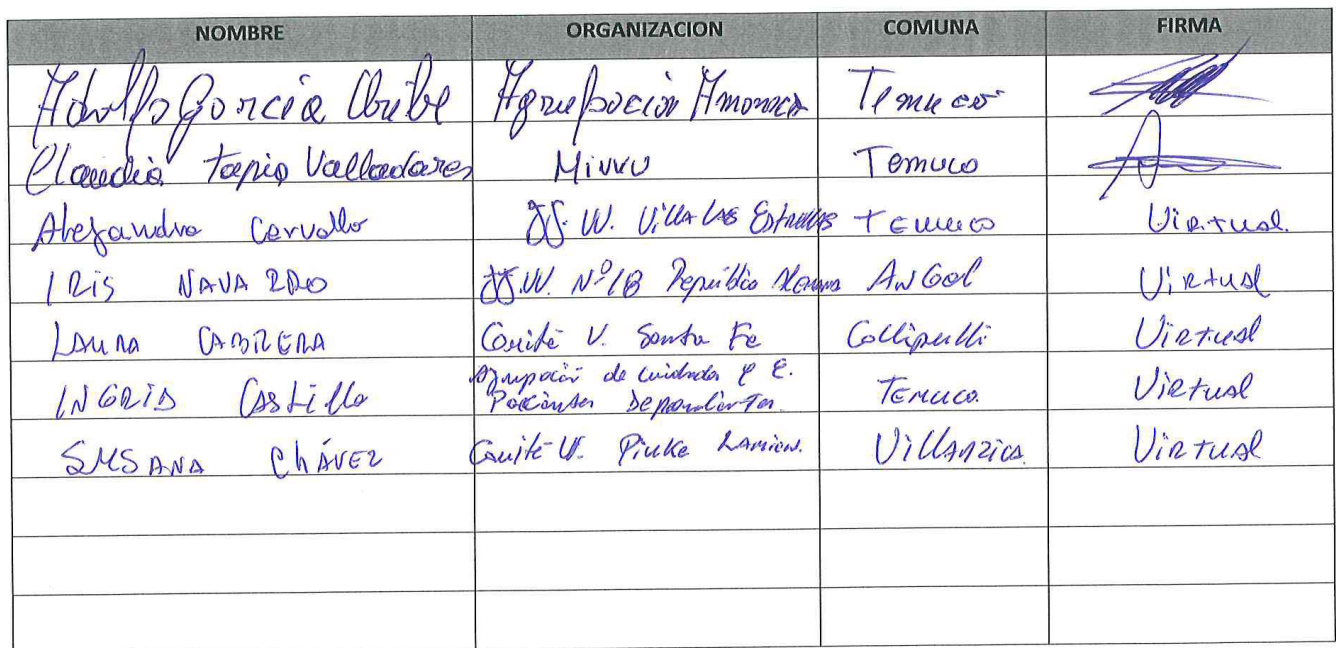 NOMBRE ORGANIZACION COMUNA FIRMA
Adolfo García Uribe Agrupación Temuco
Claudia Tapia Valladares Minvu Temuco
Alejandra Carvallo JJ.VV. Villa Las Estrellas Temuco Virtual.
IRIS NAVARRO JJ.VV. Nº18 República Alemana Angol Virtual
LAURA CABRERA Comité V. Santa Fe Collipulli Virtual
Agrupación de cuidador
INGRID Castillo Temuco. Virtual
SUSANA ChÁVEZ Comité V. Piuke Lamien. Villarrica Virtual